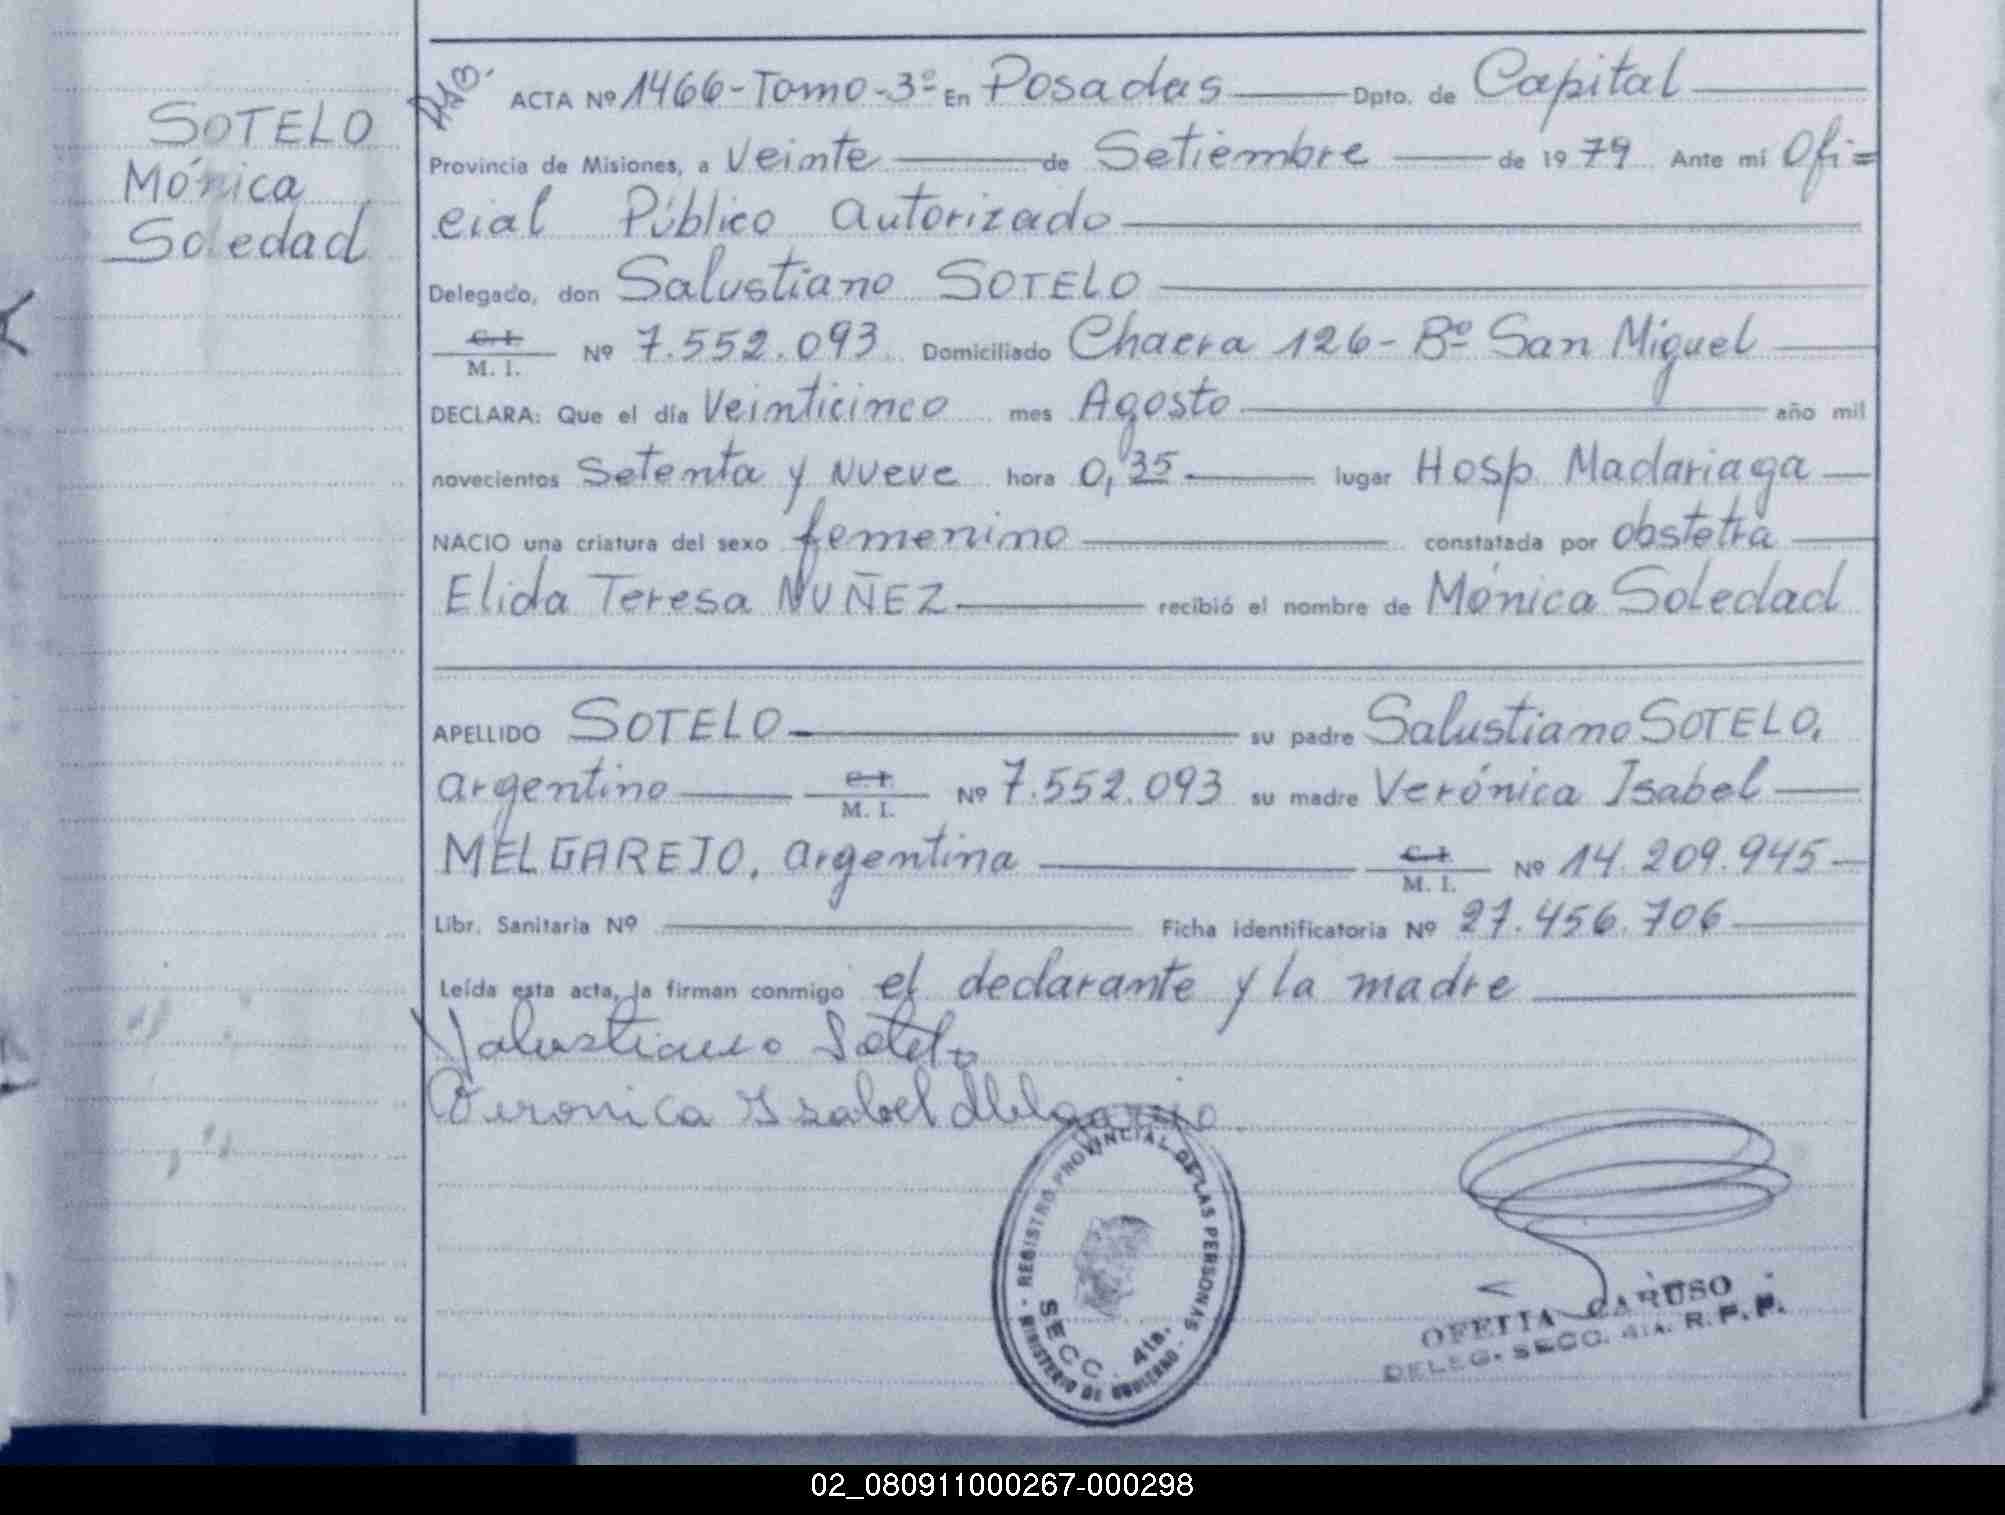 SOTELO
Mónica
Soledad
ACTA Nº 1466-Tomo-3º En Posadas Dpto. de Capital
Provincia de Misiones, a Veinte de Setiembre de 1979 Ante mí Ofi=
cial Público Autorizado
Delegado, don Salustiano SOTELO
C.I.
M. I. Nº 7.552.093 Domiciliado Chacra 126- Bº San Miguel
DECLARA: Que el día Veinticinco mes Agosto año mil
novecientos Setenta y Nueve hora 0,35 lugar Hosp. Madariaga
NACIO una criatura del sexo femenino constatada por obstetra
Elida Teresa NUÑEZ recibió el nombre de Mónica Soledad
APELLIDO SOTELO su padre Salustiano SOTELO,
argentino C.I. M. I. Nº 7.552.093 su madre Verónica Isabel
MELGAREJO, argentina C.I. M. I. Nº 14.209.945
Libr. Sanitaria Nº Ficha identificatoria Nº 27.456.706
Leída esta acta, la firman conmigo el declarante y la madre
Salustiano Sotelo
Veronica Isabel Melgarejo
REGISTRO PROVINCIAL DE LAS PERSONAS
MINISTERIO DE GOBIERNO
SECC. 4ta.
OFELIA CARUSO
DELEG. SECC. 4ta. R. P. P.
02_080911000267-000298